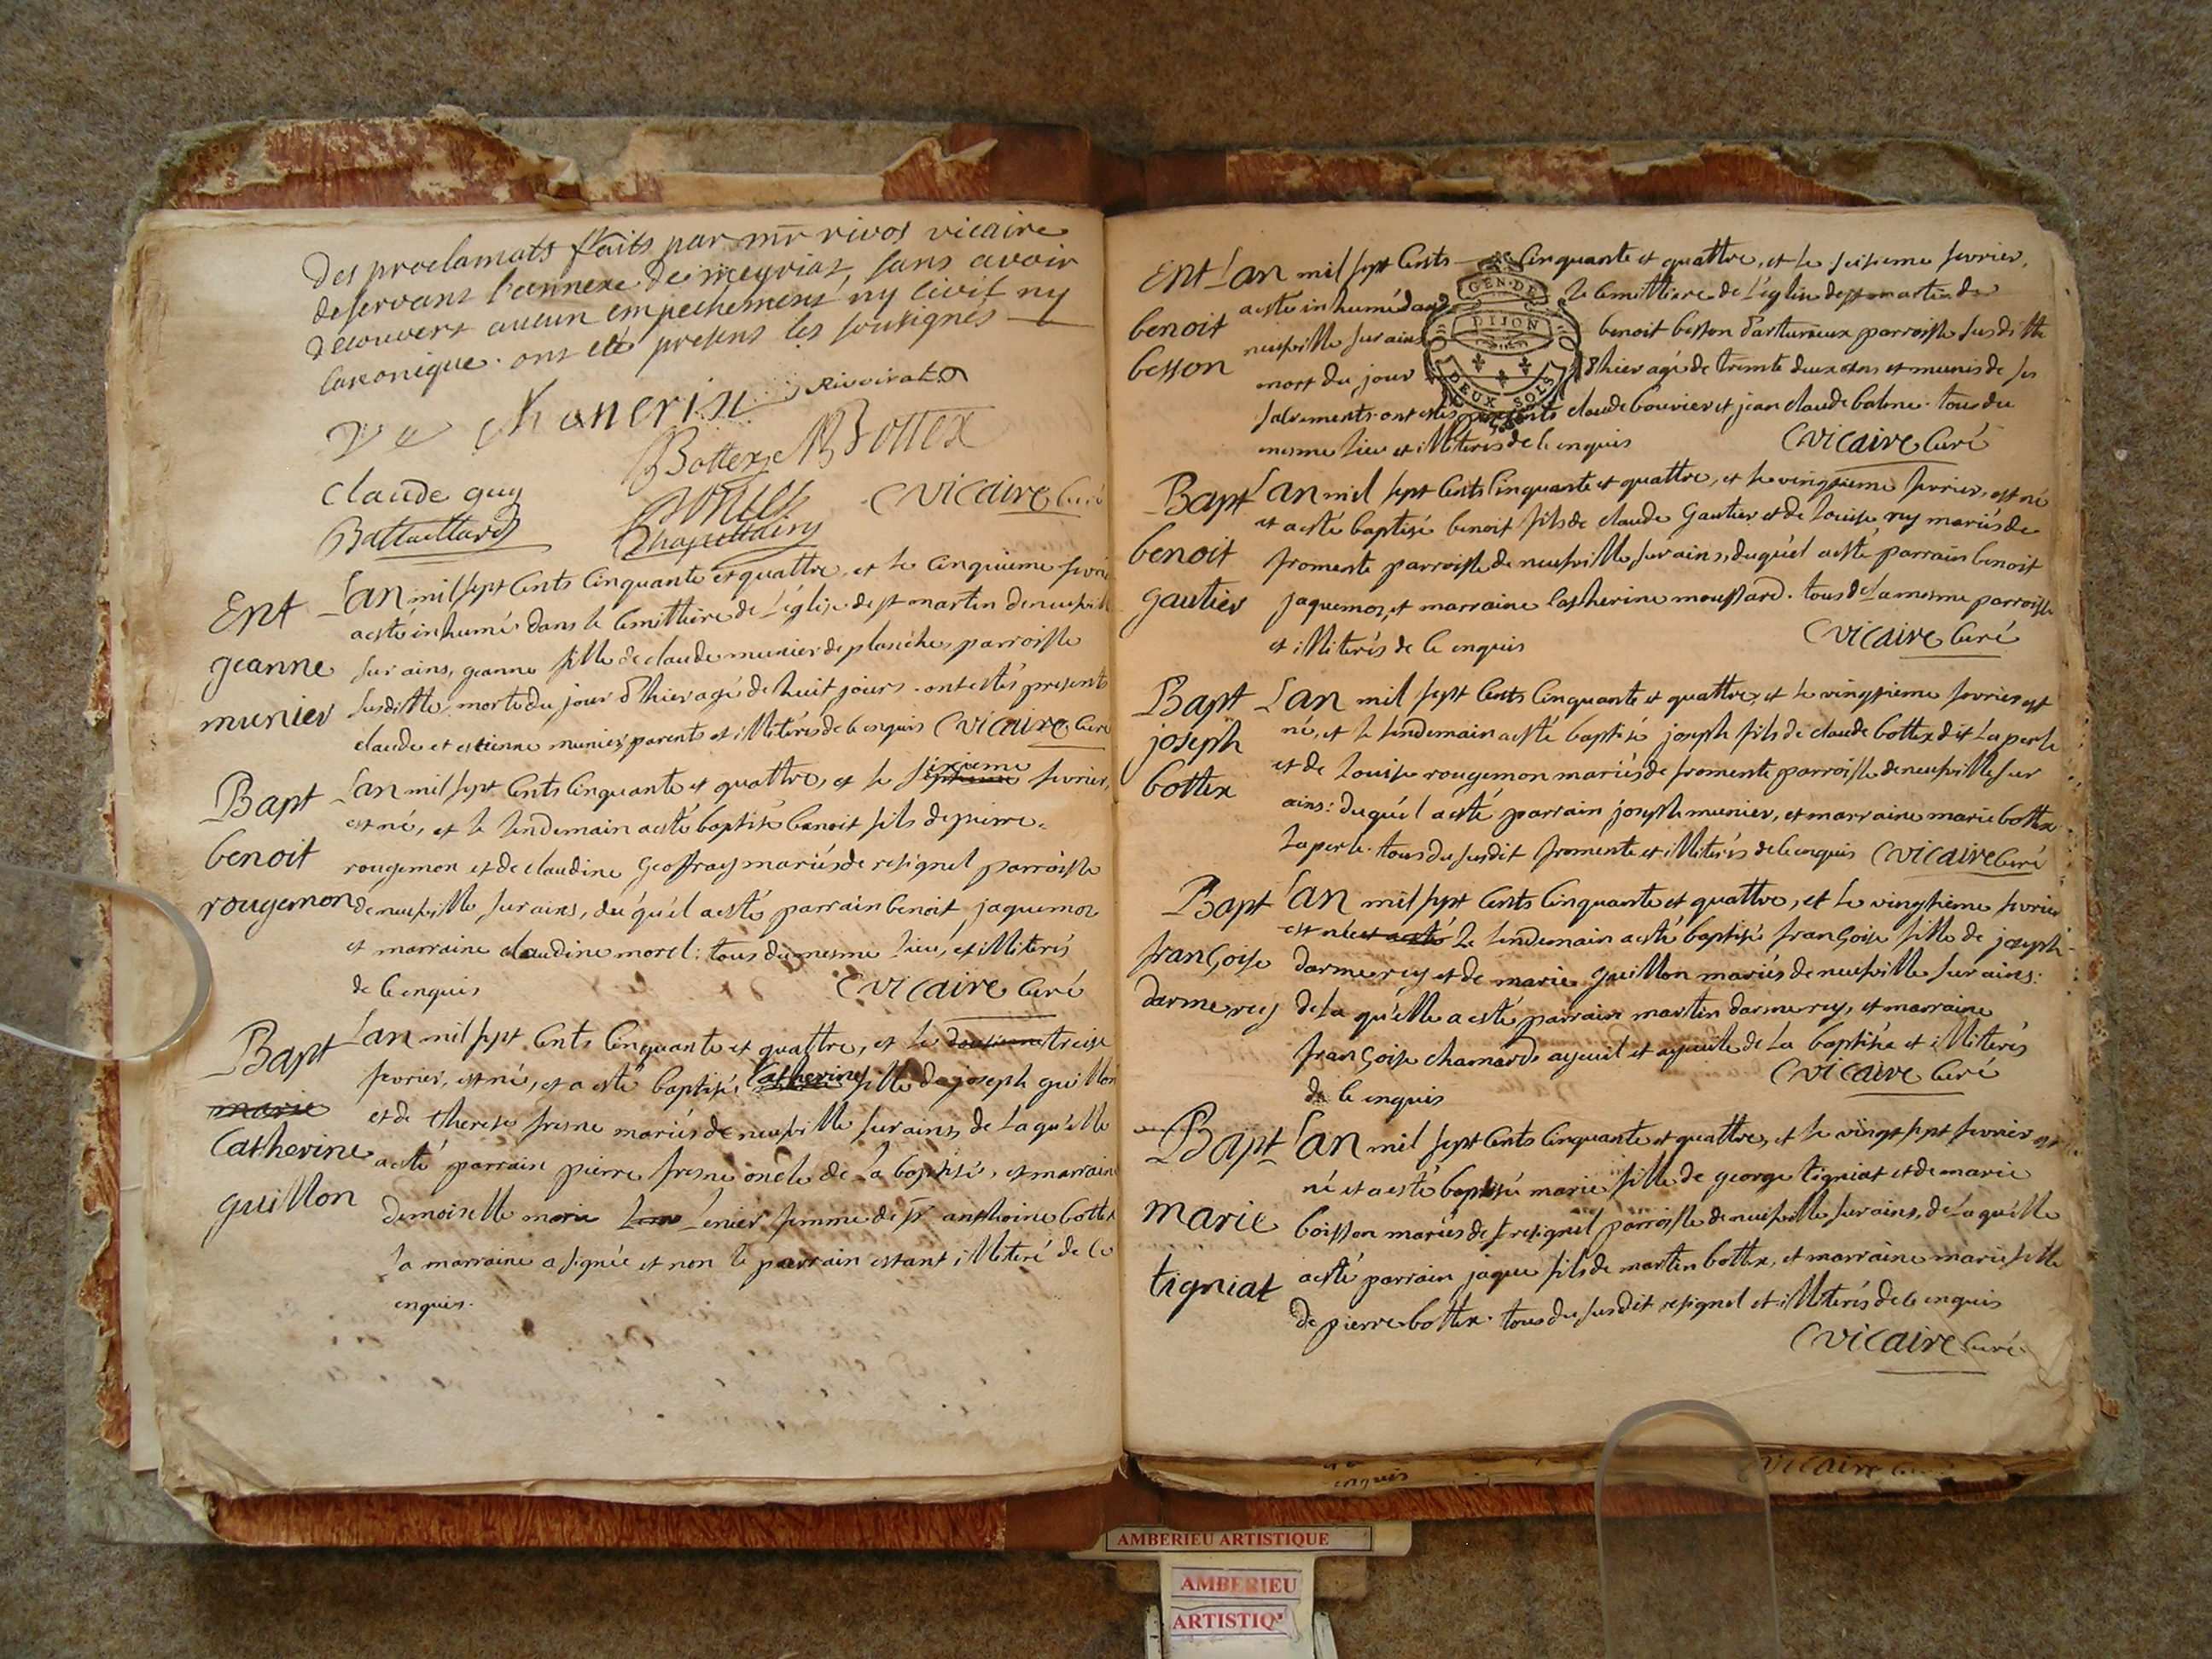 des proclamats faits par mr rivos vicaire
deservant l'annexe de meyriat, sans avoir
decouvert aucun empechement ny civil ny
canonique. ont eté presens les sousignes
Rivoirat
Bottex Bottex
claude guy
Battaillard
Chapottairy
C vicaire Curé
Ent
geanne
munier
L'an mil sept Cents Cinquante et quattre, et le Cinquieme fevrier
a esté inhumé dans le Cimittiere de L'église de st martin de neufville
sur ains, geanne fille de claude munier de planche, parroisse
susditte, morte du jour d'hier agé de huit jours. ont estés presents
claude et estienne munier, parents et illiterés de ce enquis C vicaire Curé
Bapt
benoit
rougemon
L'an mil sept Cents Cinquante et quattre, et le sixieme fevrier,
est né, et le Lendemain a esté baptisé benoit fils de pierre
rougemon et de claudine Geoffray mariés de resignel parroisse
de neufville sur ains, du quél a esté parrain benoit jaquemoz
et marraine claudine morel: tous du mesme Lieu, et illiterés
de ce enquis C vicaire Curé
Bapt
marie
Catherine
guillon
L'an mil sept Cents Cinquante et quattre, et le douzieme treize
fevrier, est né, et a esté baptisé Catherine fille de joseph guillon
et de therese fresne mariés de neufville sur ains, de La qu'élle
a esté parrain pierre fresne oncle de La baptisé, et marraine
demoiselle marie Lenier femme de sr anthoine bottex
La marraine a signée et non le parrain estant illiteré de ce
enquis.
Ent
benoit
besson
L'an mil sept Cents Cinquante et quattre, et le seizieme fevrier,
a esté inhumé dans le Cimittiere de L'église de st martin de
neufville sur ains benoit besson d'arturieux parroisse susditte
mort du jour d'hier agé de trente deux ans et munis de ses
sacrements. ont estés presents claude bouvier et jean claude balme. tous du
mesme Lieu et illiterés de ce enquis C vicaire Curé
GEN. DE
DIJON
DEUX SOLS
Bapt
benoit
gautier
L'an mil sept Cents Cinquante et quattre, et le vingtieme fevrier, est né
et a esté baptisé benoit fils de claude Gautier et de Louise rey mariés de
fromente parroisse de neufville sur ains, duquél a esté parrain benoit
jaquemoz, et marraine Catherine moussard. tous de La mesme parroisse
et illiterés de ce enquis C vicaire Curé
Bapt
joseph
bottex
L'an mil sept Cents Cinquante et quattre, et le vingtieme fevrier est
né, et le Lendemain a esté baptisé joseph fils de claude bottex dit Laperle
et de Louise rougemon mariés de fromente parroisse de neufville sur
ains: duquél a esté parrain joseph munier, et marraine marie bottex
Laperle. tous du susdit fromente et illiterés de ce enquis C vicaire Curé
Bapt
françoise
darmerey
L'an mil sept Cents Cinquante et quattre, et le vingtieme fevrier
est né et a esté Le Lendemain a esté baptisé françoise fille de joseph
darmerey et de marie guillon mariés de neufville sur ains:
de La qu'élle a esté parrain martin darmerey, et marraine
françoise chamarde ayeuil et ayeuile de La baptisée et illiterés
de ce enquis C vicaire Curé
Bapt
marie
tigniat
L'an mil sept Cents Cinquante et quattre, et le vingt sept fevrier est
né et a esté baptisé marie fille de george tigniat et de marie
boisson mariés de resignel parroisse de neufville sur ains, de La quélle
a esté parrain jaque fils de martin bottex, et marraine marie fille
de pierre bottex. tous du susdit resignel et illiterés de ce enquis
C vicaire Curé
enquis
C vicaire
AMBERIEU ARTISTIQUE
AMBERIEU
ARTISTIQ